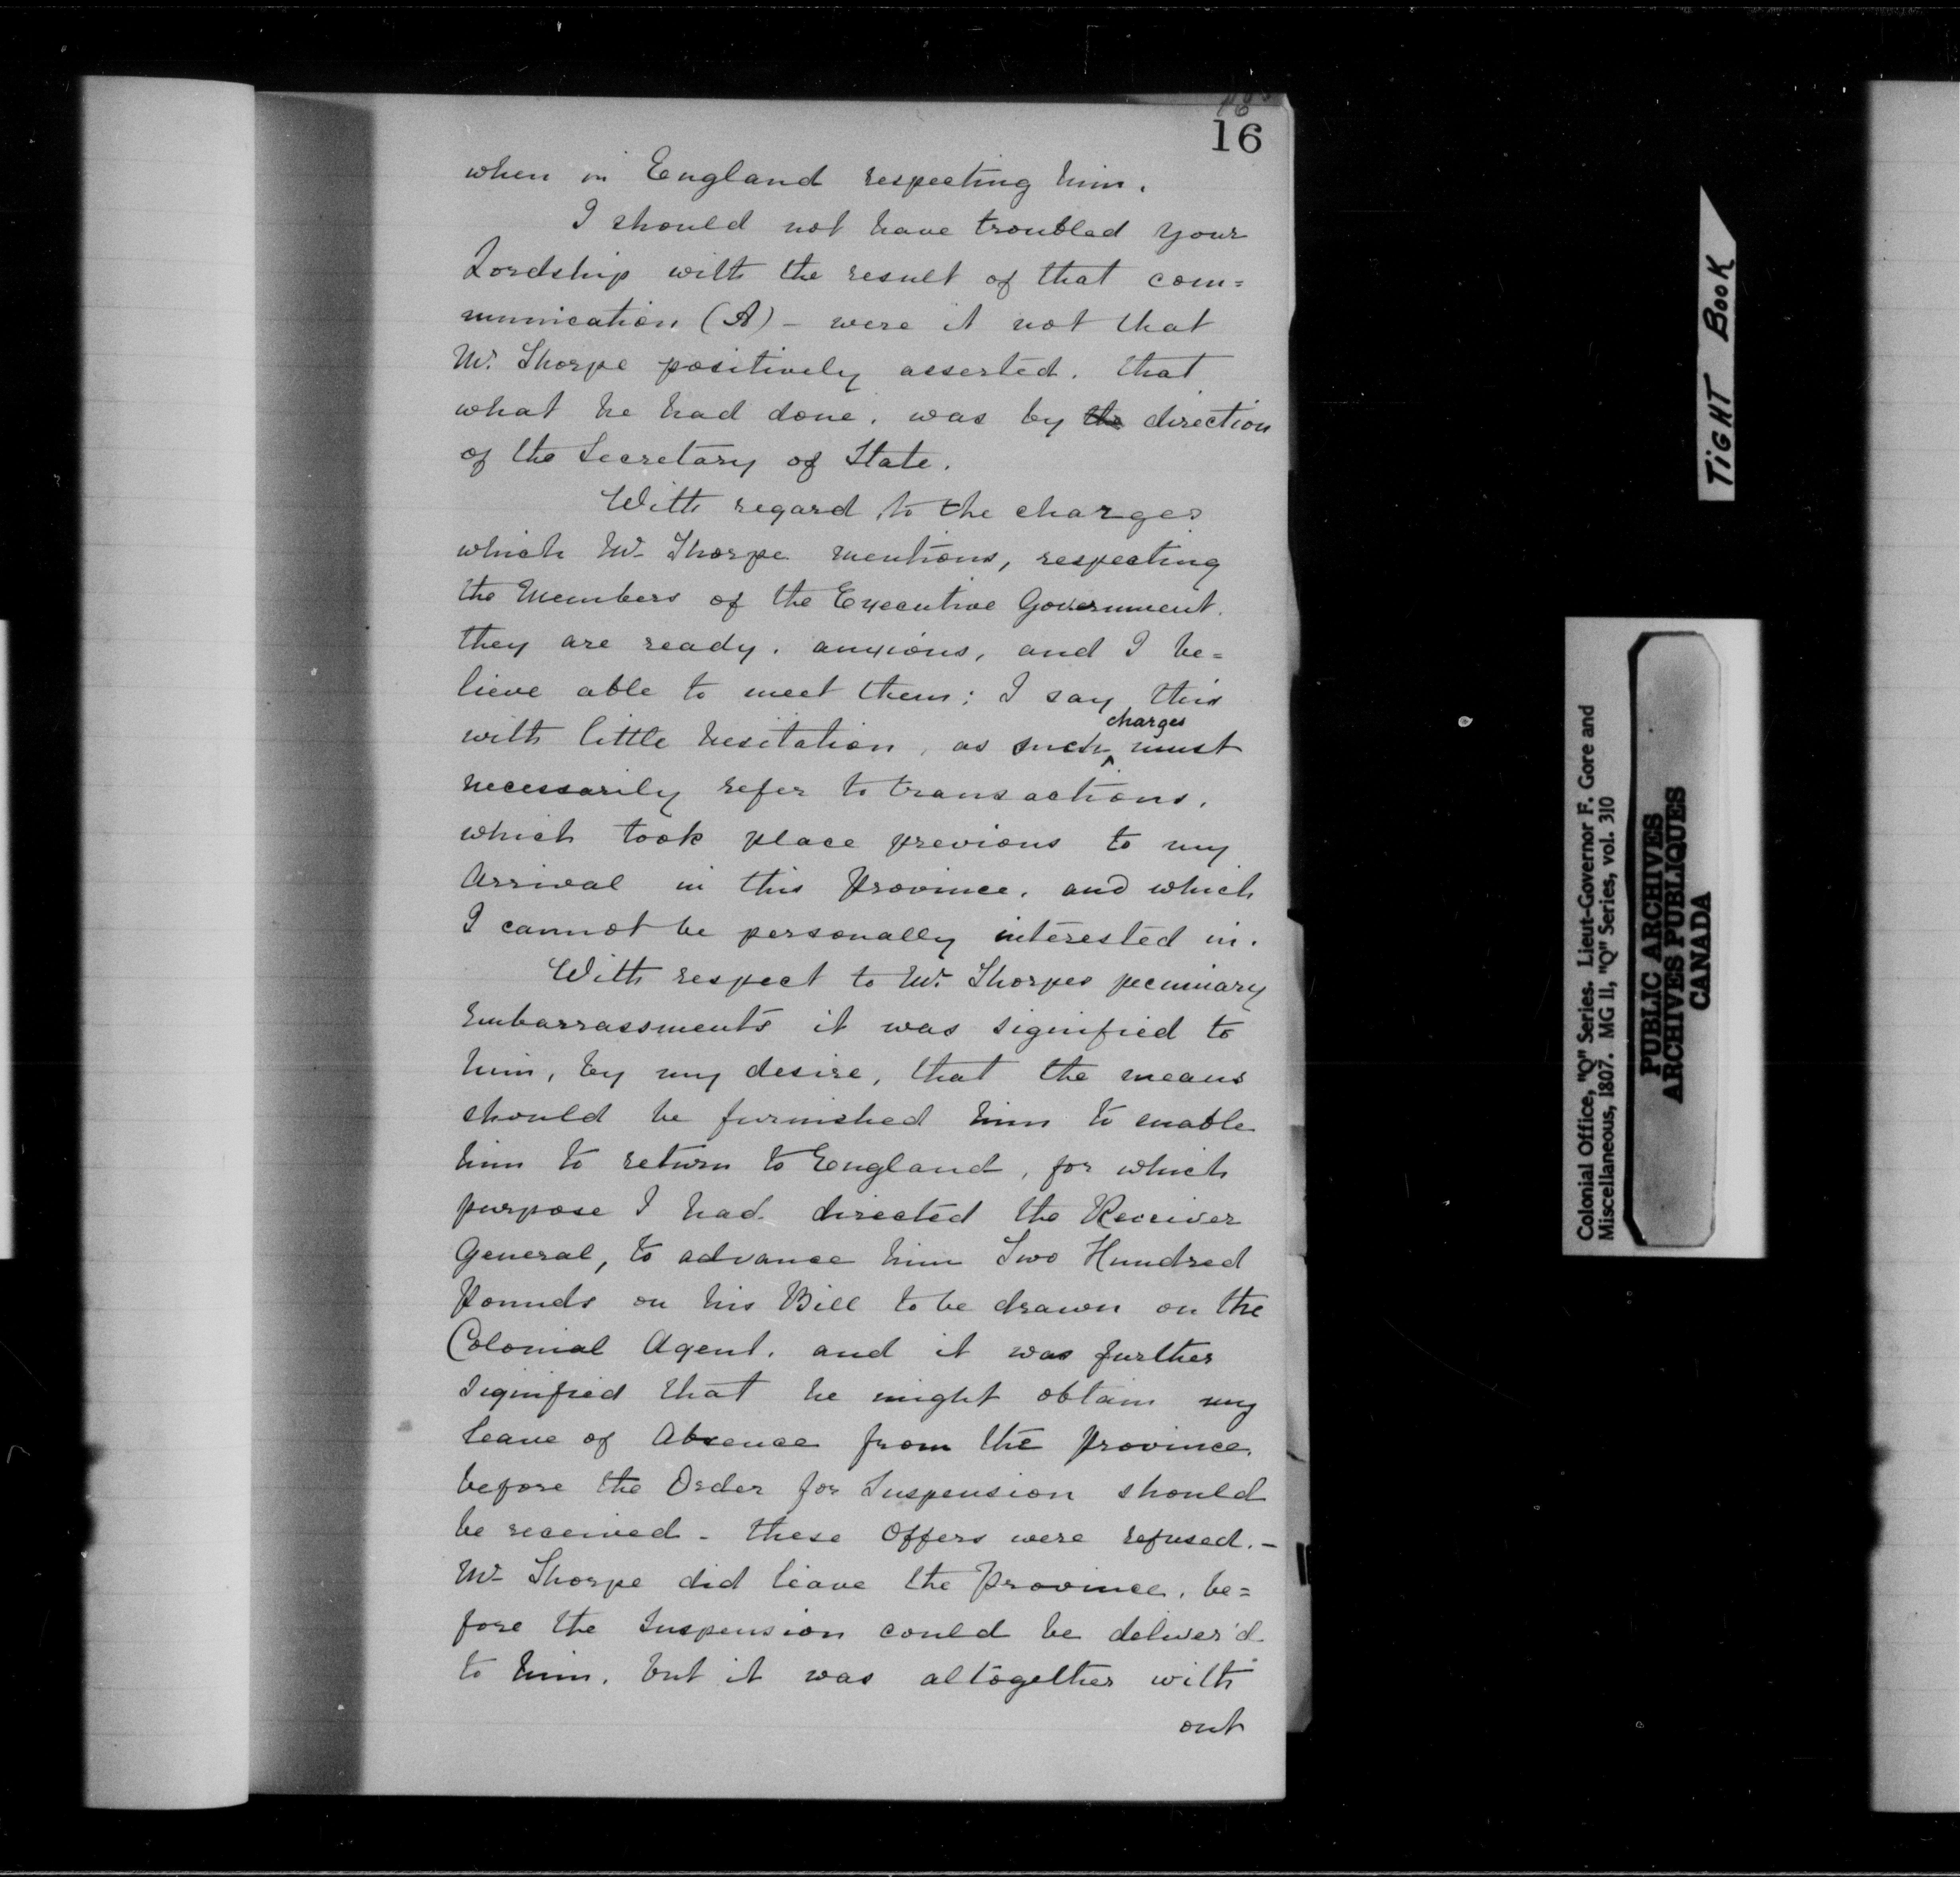 16
when in England respecting him.
I should not have troubled your
Lordship with the result of that com=
munication (A) - were it not that
Mr. Thorpe positively asserted. that
what he had done. was by the direction
of the Secretary of State.
With regard to the charges
which Mr Thorpe mentions, respecting
the Members of the Executive Government.
they are ready. anxious, and I be=
lieve able to meet them; I say this
with little hesitation, as such charges must
necessarily refer to transactions.
which took place previous to my
Arrival in this Province. and which
I cannot be personally interested in.
With respect to Mr. Thorpes pecuniary
Embarrassments it was signified to
him, by my desire, that the means
should be furnished him to enable
him to return to England, for which
purpose I had directed the Receiver
General, to advance him Two Hundred
Pounds on his Bill to be drawn on the
Colonial Agent. and it was further
signified that he might obtain my
leave of Absence from the Province.
before the Order for Suspension should
be received - these Offers were refused. -
Mr Thorpe did leave the Province. be=
fore the Suspension could be deliver'd
to him. but it was altogether with
out
TIGHT BOOK
Colonial Office, "Q" Series. Lieut-Governor F. Gore and
Miscellaneous, 1807. MG 11, "Q" Series, vol. 310
PUBLIC ARCHIVES
ARCHIVES PUBLIQUES
CANADA